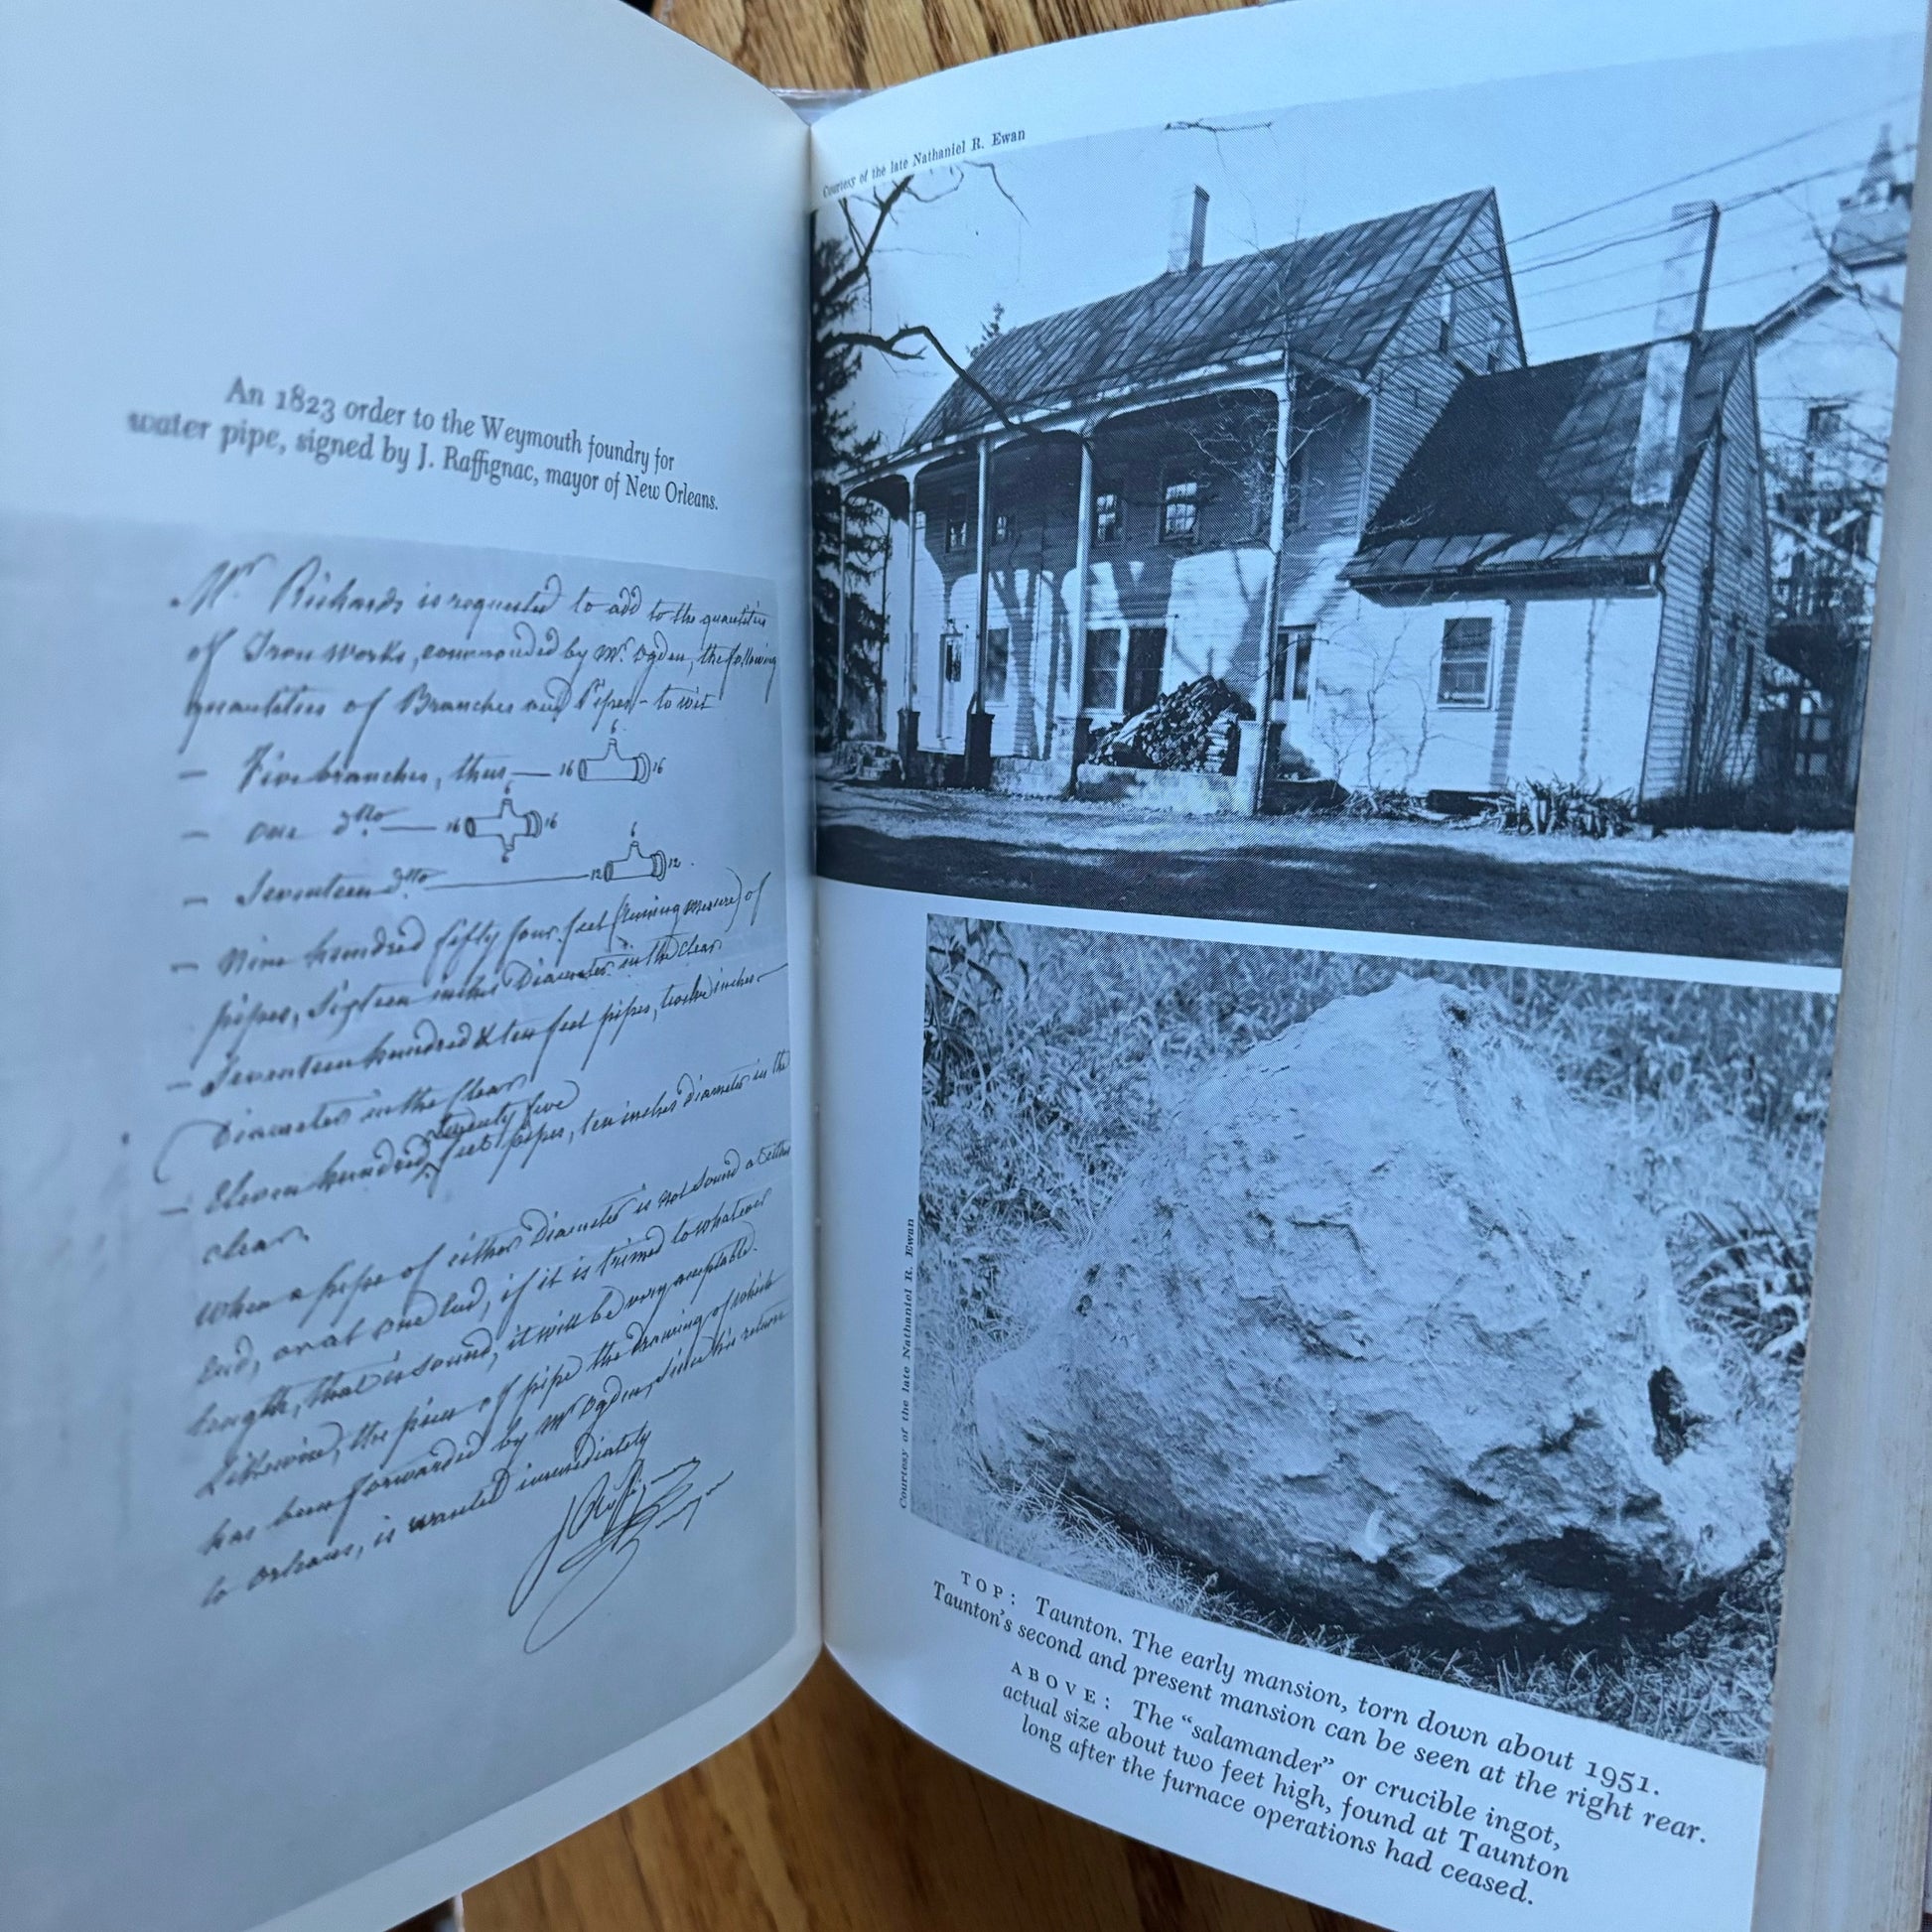 An 1823 order to the Weymouth foundry for
water pipe, signed by J. Raffignac, mayor of New Orleans.
Mr Richards is requested to add to the quantities
of Iron works, commanded by Mr. Ogden, the following
quantities of Branches and Pipes - to wit
- Five branches, thus — 16 6 16
- one dtto — 16 6 6 16
- Seventeen dtto — 12 6 12
- Nine hundred fifty four feet (running measure) of
pipes, Sixteen inches Diameter in the clear
- Seventeen hundred & ten feet pipes, twelve inches
Diameter in the clear
- Eleven hundred twenty five feet pipes, ten inches diameter in the
clear.
When a pipe of either Diameter is not sound at either
End, or at one End, if it is trimed to whatever
length, that is sound, it will be very acceptable.
Likewise, the piece of pipe the drawing of which
has been forwarded by Mr Ogden, since his return
to orleans, is wanted immediately
Courtesy of the late Nathaniel R. Ewan
Courtesy of the late Nathaniel R. Ewan
TOP: Taunton. The early mansion, torn down about 1951.
Taunton's second and present mansion can be seen at the right rear.
ABOVE: The "salamander" or crucible ingot,
actual size about two feet high, found at Taunton
long after the furnace operations had ceased.